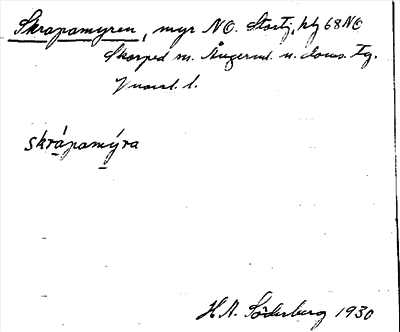 Skrapamyren, myr NO. Stortj, kbl 68 NO
Skorped sn. Ångerml. n. doms. Tg.
V norrl. l.
skrápamýra
H. A. Söderberg 1930